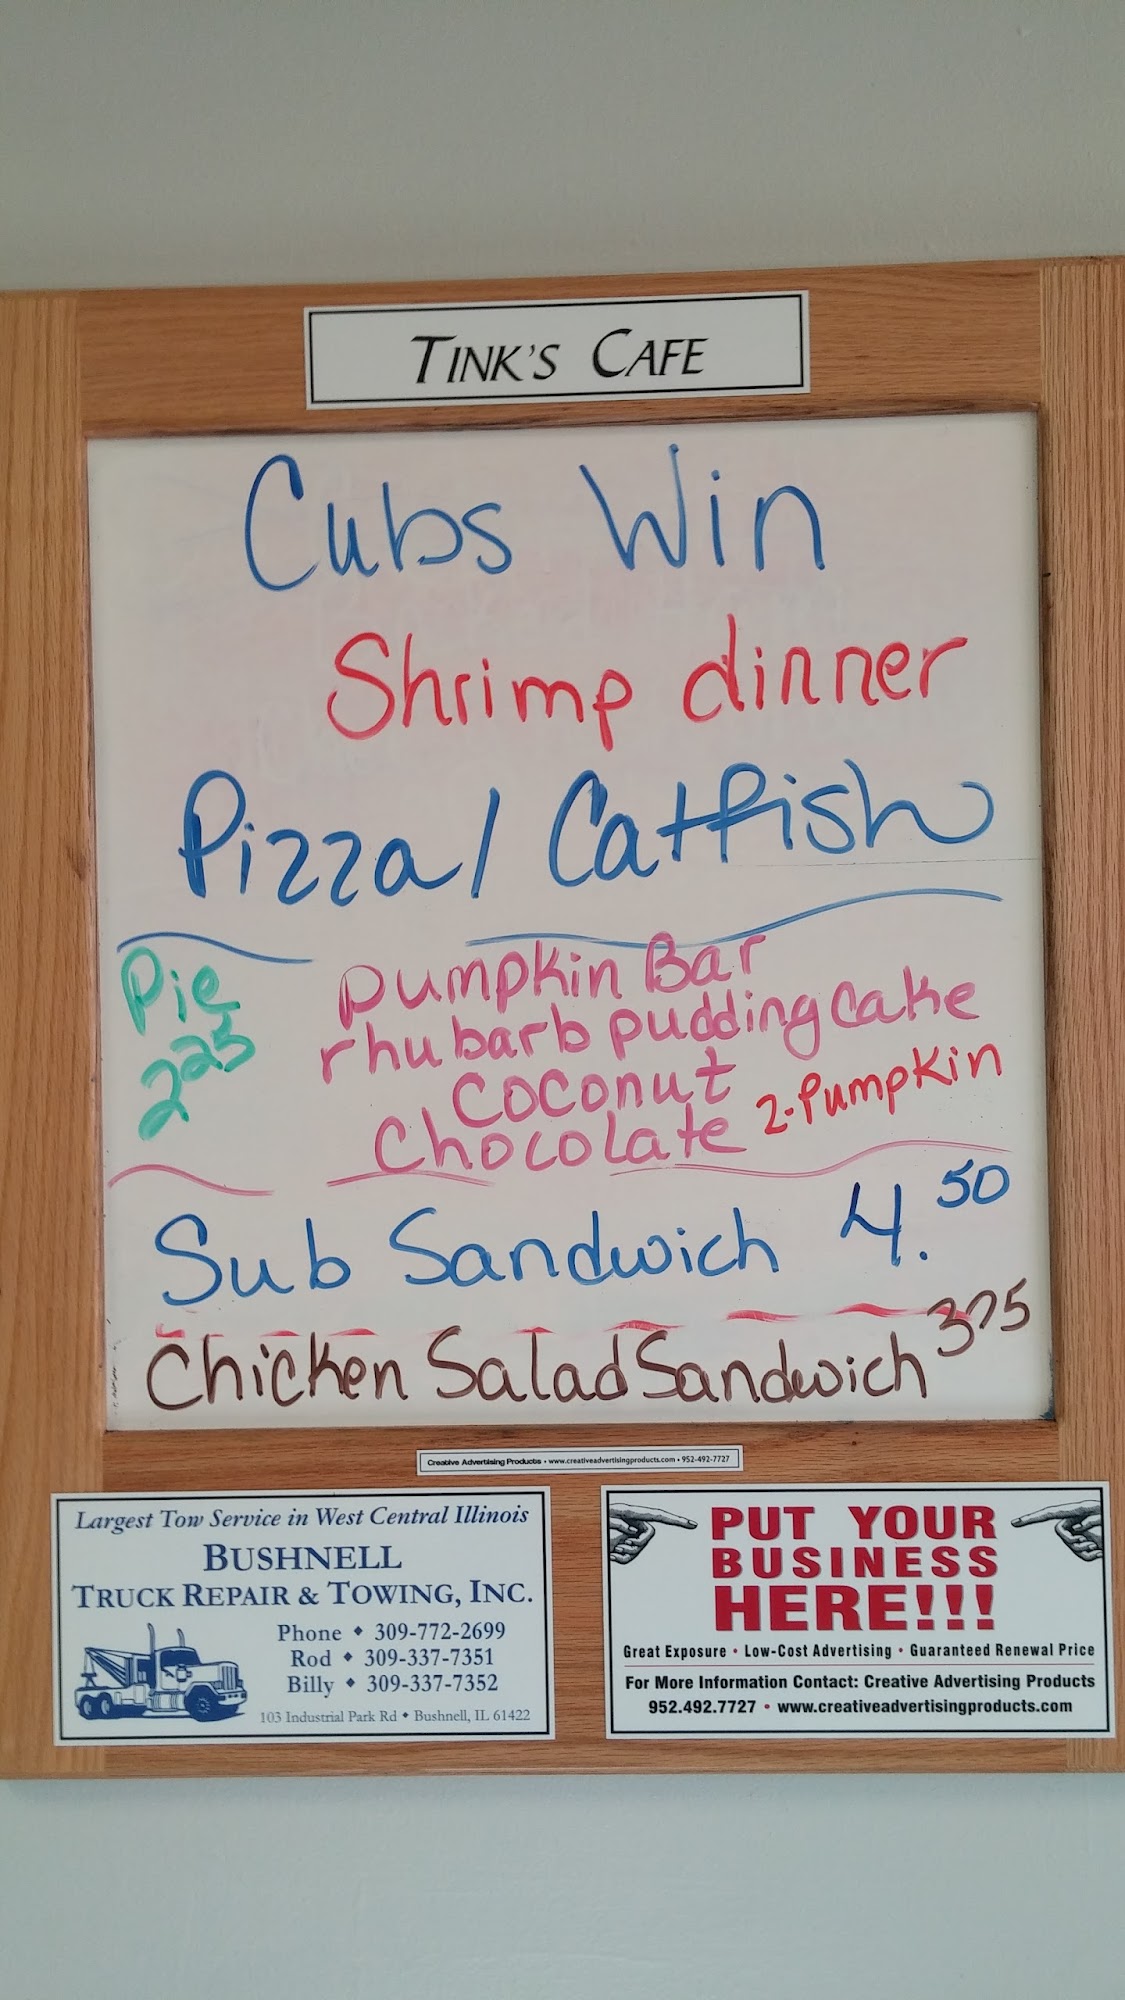 TINK'S CAFE
Cubs Win
Shrimp dinner
Pizza/Catfish
Pie
2 25
Pumpkin Bar
rhubarb pudding cake
Coconut
Chocolate
2-Pumpkin
Sub Sandwich 4.50
Chicken Salad Sandwich 375
Creative Advertising Products • www.creativeadvertisingproducts.com • 952-492-7727
Largest Tow Service in West Central Illinois
BUSHNELL
TRUCK REPAIR & TOWING, INC.
Phone ◆ 309-772-2699
Rod ◆ 309-337-7351
Billy ◆ 309-337-7352
103 Industrial Park Rd ◆ Bushnell, IL 61422
PUT YOUR
BUSINESS
HERE!!!
Great Exposure • Low-Cost Advertising • Guaranteed Renewal Price
For More Information Contact: Creative Advertising Products
952.492.7727 • www.creativeadvertisingproducts.com